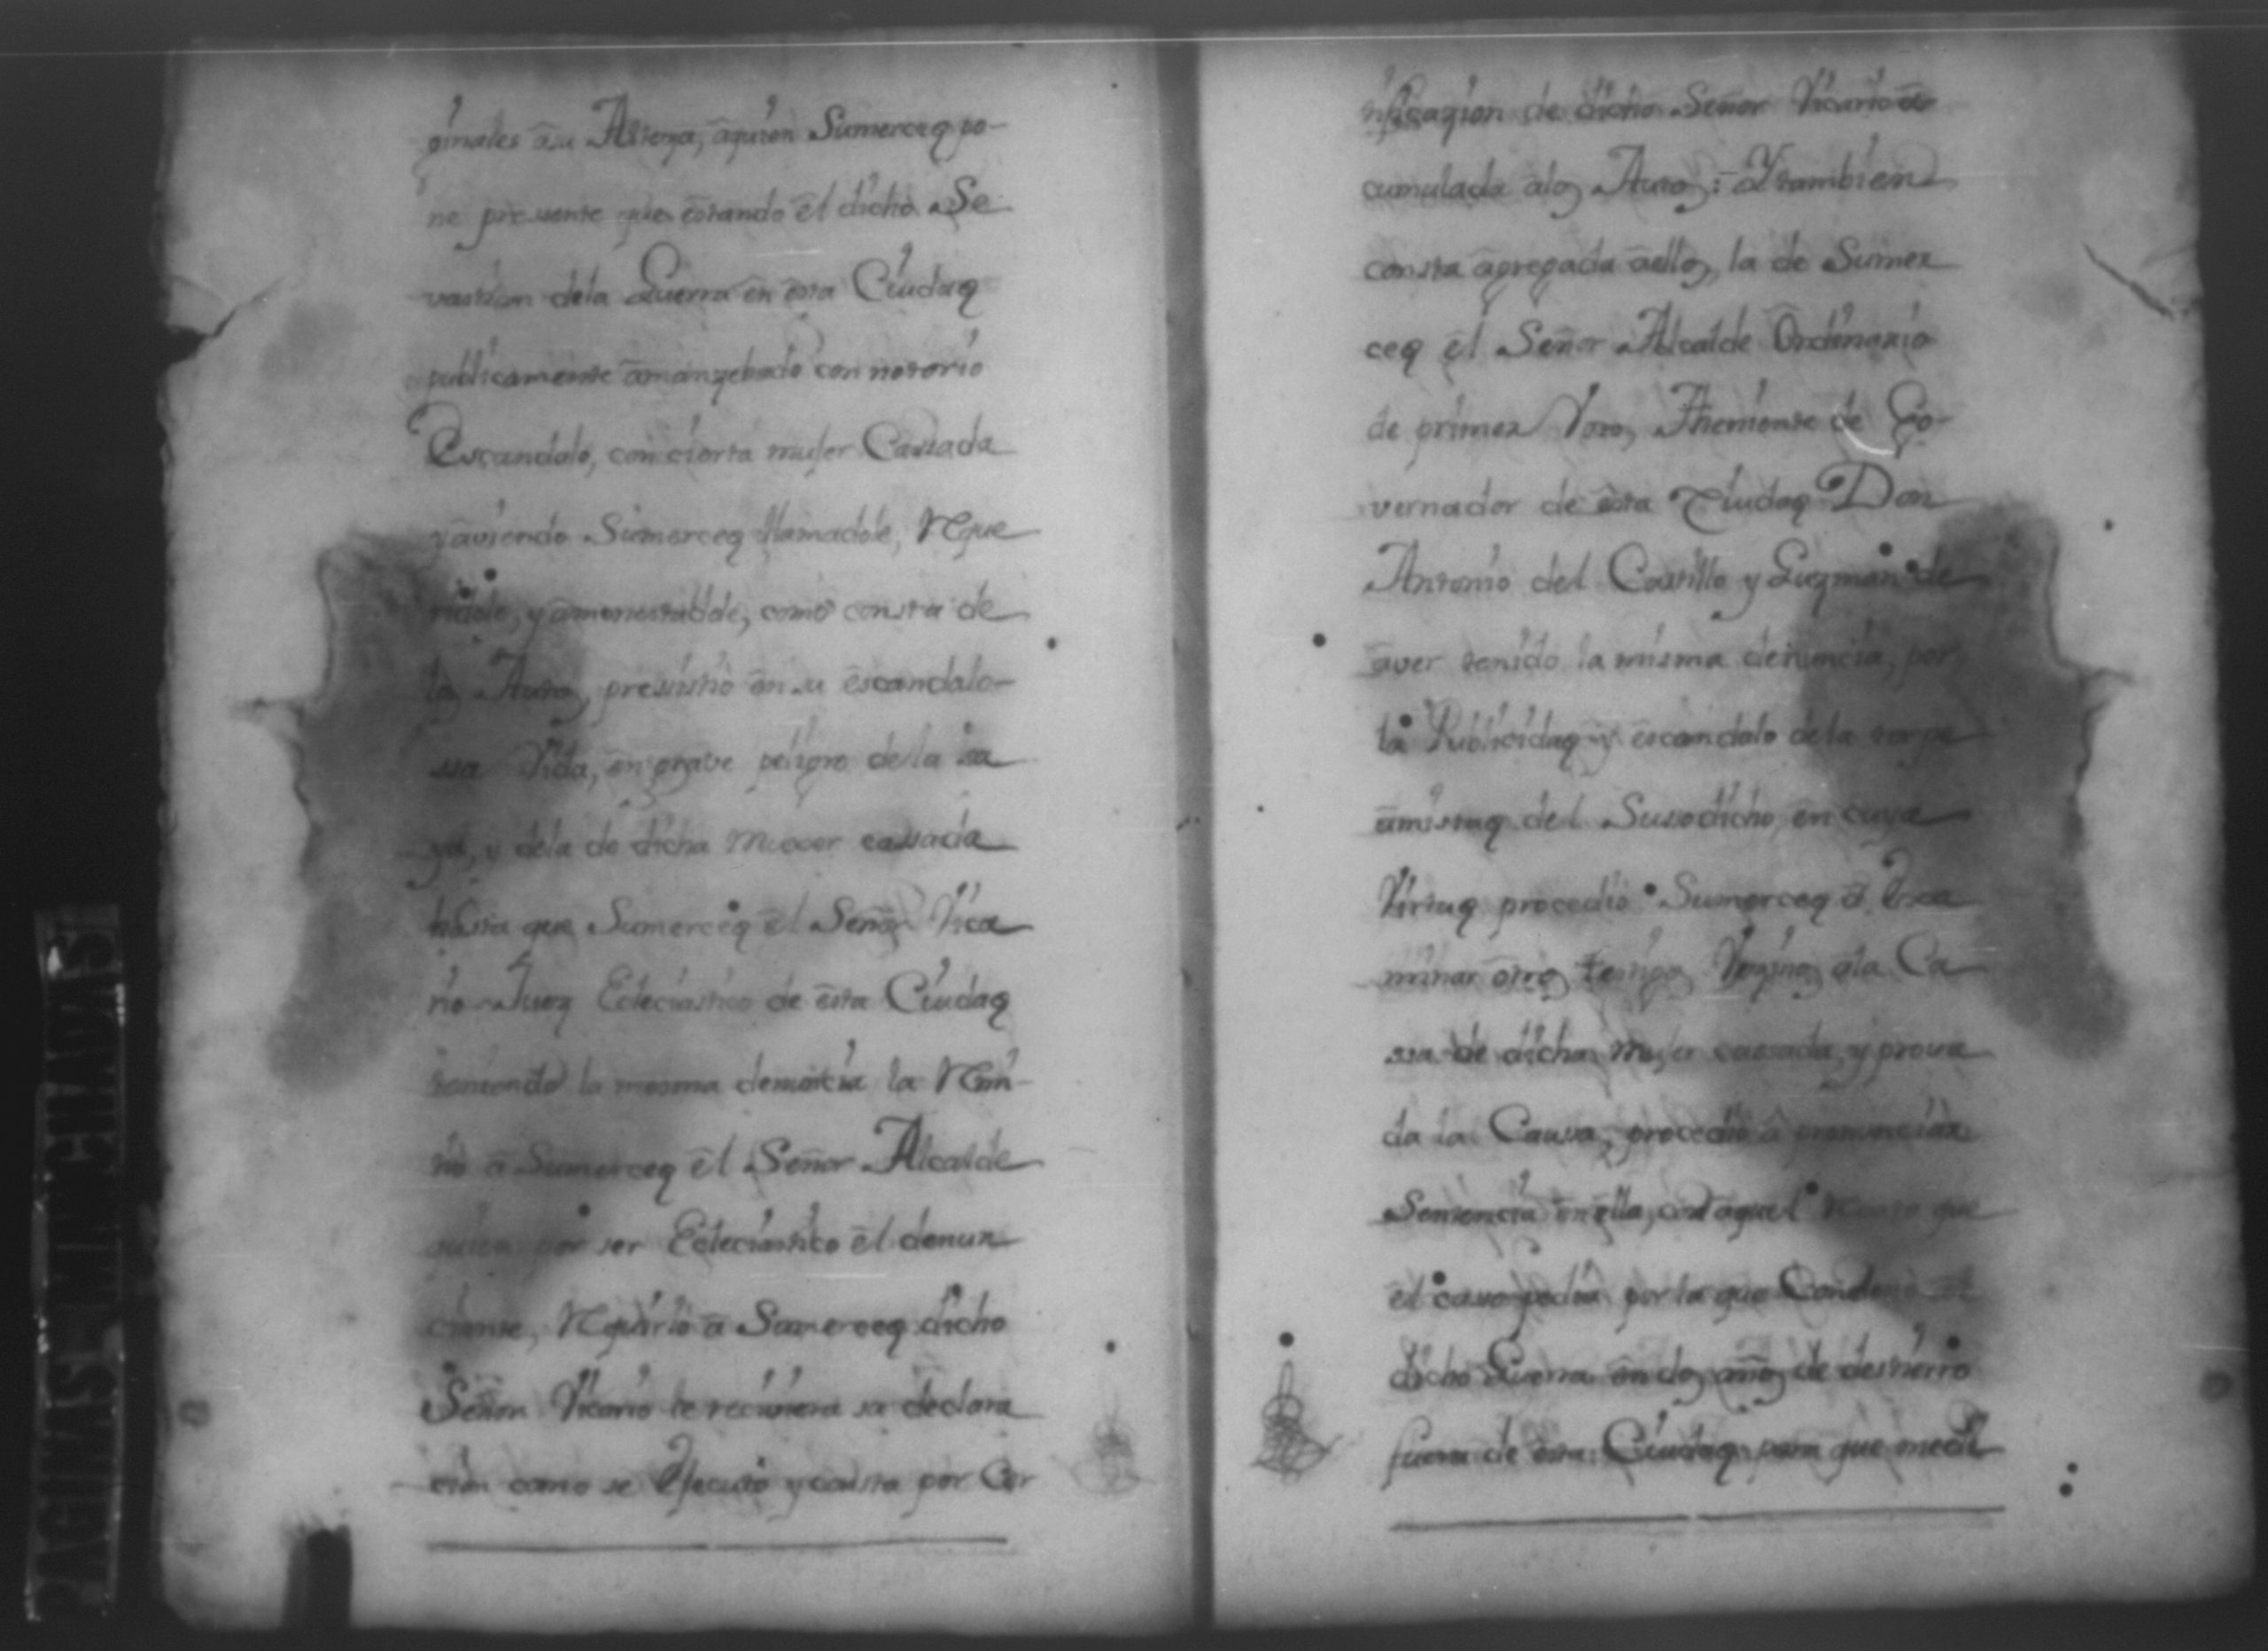 ginales a su Alteza, aquien Sumerceq po-
ne presente que estando el dicho Se
vastian dela Guerra en esta Ciudaq
publicamente amanzebado con notorio
Escandalo, con cierta mujer Cassada
y aviendo Sumerceq llamadole, Reque
ridole, y amonestadole, como consta de
los Autos, presistio en su escandalo-
ssa Vida, en grave peligro de la su
ya, y dela de dicha Muger cassada
hasta que Sumerceq el Señor Vica
rio Juez Ecleciastico de esta Ciudaq
teniendo la mesma denuncia la Remi-
tio a Sumerceq el Señor Alcalde
por ser Ecleciastico el denun
ciante, Requirio a Sumerceq dicho
Señor Vicario le reciviera su declara
cion como se Efecuto y consta por Cer
tificazion de dicho Señor Vicario a
cumulada alos Autos: Y tambien
consta agregada aellos, la de Sumer
ceq el Señor Alcalde Ordinario
de primer Voto, Theniente de Go-
vernador de esta Ciudaq Don
Antonio del Castillo y Guzman de
aver tenido la misma denuncia, por
la Publicidaq y escandalo de la torpe
amistaq del Susodicho, en cuya
Virtuq procedio Sumerceq a Exsa
minar otros testigos Vezinos ala Ca
ssa de dicha Mujer cassada, y prova
da la Caussa, procedio a pronunciar
Sentencia en ella, con aquel que
el casso pedia por la que Condeno el
dicho Guerra en dos años de destierro
fuera de esta Ciudaq para que medi